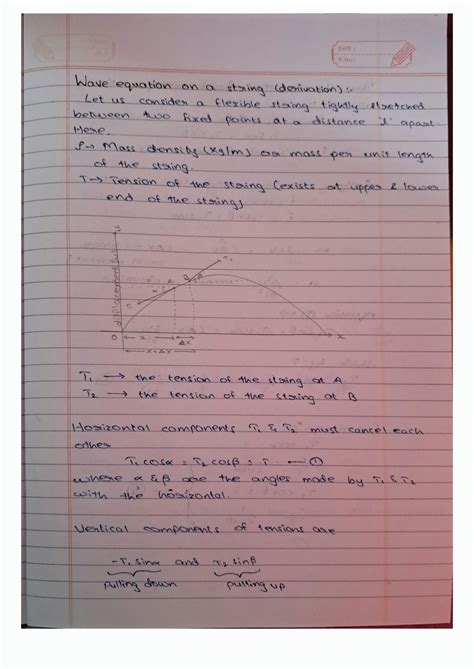 DATE:
P.No.:
Wave equation on a string (derivation) :-
Let us consider a flexible string tightly stretched
between two fixed points at a distance 'l' apart
Here,
ρ → Mass density (kg/m) or mass per unit length
of the string.
T → Tension of the string (exists at upper & lower
end of the string)
displacement
u
T1
A
B
T2
α
β
O
x
Δx
x
x+Δx
T1 → the tension of the string at A
T2 → the tension of the string at B
Horizontal components T1 & T2 must cancel each
other
T1 cosα = T2 cosβ = T —①
where α & β are the angles made by T1 & T2
with the horizontal.
Vertical components of tensions are
-T1 sinα and T2 sinβ
pulling down pulling up